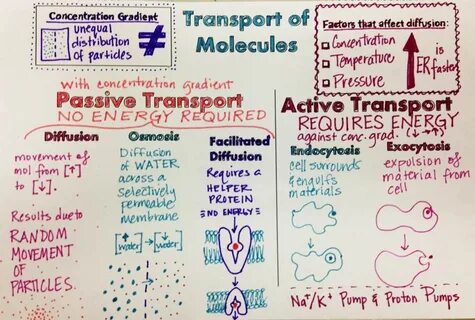 Concentration Gradient
unequal
distribution
of particles
≠
Transport of
Molecules
Factors that affect diffusion:
Concentration
Temperature
Pressure
is
faster
With concentration gradient
Passive Transport
NO ENERGY REQUIRED
Active Transport
REQUIRES ENERGY
against conc. grad. (↓→↑)
Diffusion
movement of
mol from [↑]
to [↓].
Results due to
RANDOM
MOVEMENT
OF
PARTICLES.
Osmosis
Diffusion
of WATER
across a
Selectively
permeable
membrane
[↑ water] → [↓ water]
Facilitated
Diffusion
Requires a
HELPER
PROTEIN
NO ENERGY
Endocytosis
cell surrounds
& engulfs
materials
Exocytosis
expulsion of
material from
cell
Na⁺/K⁺ Pump & Proton Pumps